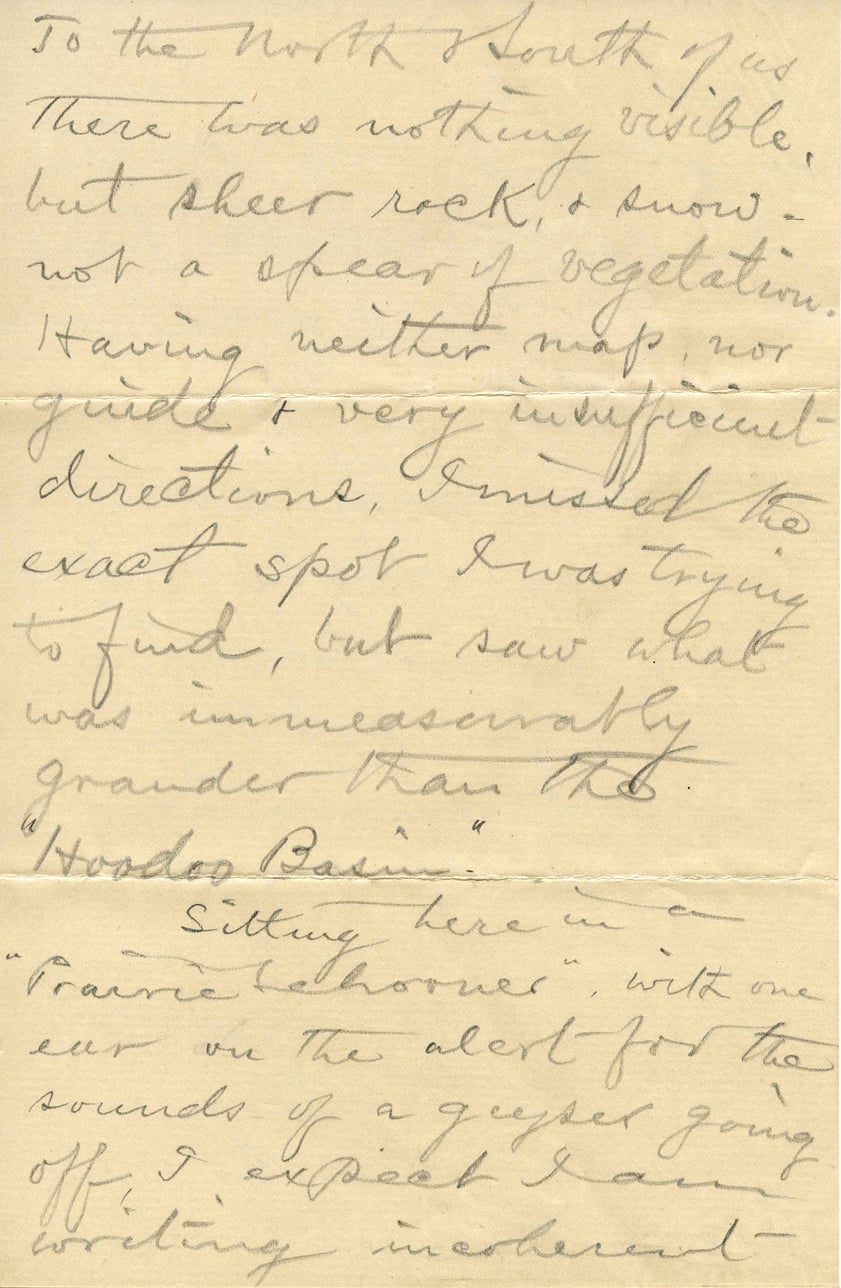 To the North & South of us
there was nothing visible,
but sheer rock, & snow -
not a spear of vegetation.
Having neither map, nor
guide & very insufficient
directions, I missed the
exact spot I was trying
to find, but saw what
was immeasurably
grander than the
"Hoodoo Basin."
Sitting here in a
"Prairie Schooner", with one
ear on the alert for the
sounds of a geyser going
off, I expect I am
writing incoherent